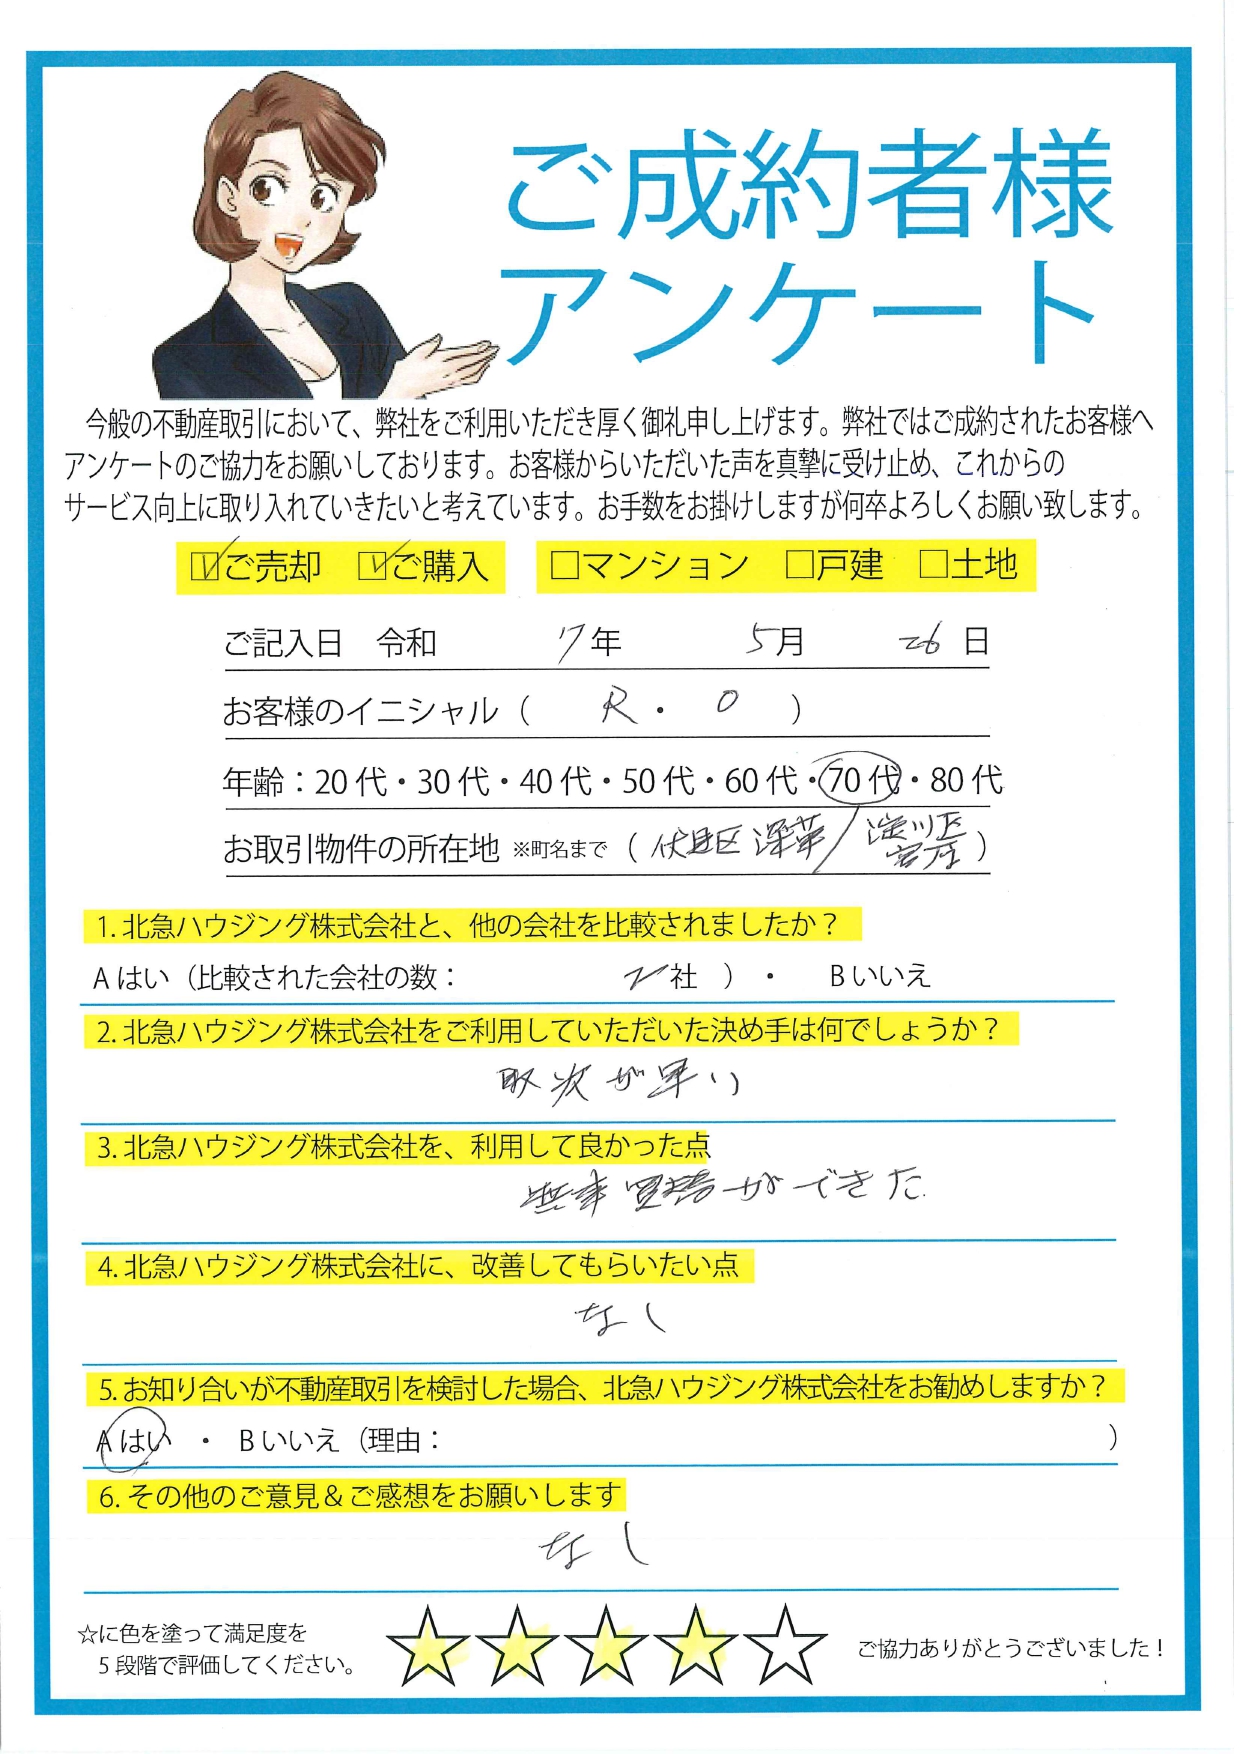 ご成約者様
アンケート
今般の不動産取引において、弊社をご利用いただき厚く御礼申し上げます。弊社ではご成約されたお客様へ
アンケートのご協力をお願いしております。お客様からいただいた声を真摯に受け止め、これからの
サービス向上に取り入れていきたいと考えています。お手数をお掛けしますが何卒よろしくお願い致します。
☑ご売却 ☑ご購入 □マンション □戸建 □土地
ご記入日 令和 7年 5月 26日
お客様のイニシャル（ R・O ）
年齢：20代・30代・40代・50代・60代・70代・80代
お取引物件の所在地 ※町名まで（伏見区深草/淀川区
宮原）
1. 北急ハウジング株式会社と、他の会社を比較されましたか？
Aはい（比較された会社の数： 2社 ）・ Bいいえ
2. 北急ハウジング株式会社をご利用していただいた決め手は何でしょうか？
取次が早い
3. 北急ハウジング株式会社を、利用して良かった点
無事買替ができた
4. 北急ハウジング株式会社に、改善してもらいたい点
なし
5. お知り合いが不動産取引を検討した場合、北急ハウジング株式会社をお勧めしますか？
Aはい ・ Bいいえ（理由： ）
6. その他のご意見＆ご感想をお願いします
なし
☆に色を塗って満足度を
5段階で評価してください。
ご協力ありがとうございました！